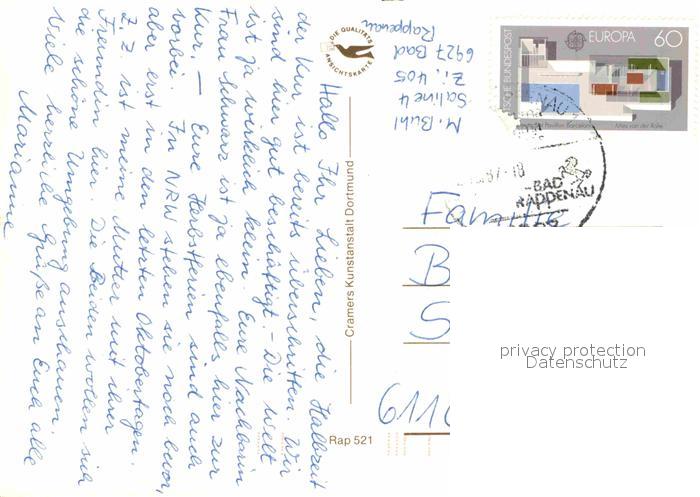 Hallo Ihr Lieben, die Halbzeit
der Kur ist bereits überschritten. Wir
sind hier gut beschäftigt. - Die Welt
ist ja wirklich klein. Eure Nachbarin
Frau Schwarz ist ja ebenfalls hier zur
Kur. - Eure Herbstferien sind auch
vorbei. In NRW stehen sie noch bevor,
aber erst in den letzten Oktobertagen.
Z. Z. ist meine Mutter mit ihrer
Freundin hier. Die Beiden wollen sich
die schöne Umgebung anschauen.
Viele herzliche Grüße an Euch alle
Marianne
DIE QUALITÄTS
ANSICHTSKARTE
Cramers Kunstanstalt Dortmund
Rap 521
M. Buhl
Saline 4
Zi. 405
6927 Bad
Rappenau
DEUTSCHE BUNDESPOST
EUROPA 60
Pavillon Barcelona Mies van der Rohe
87-18
BAD
RAPPENAU
Fam
B
S
6119
privacy protection
Datenschutz